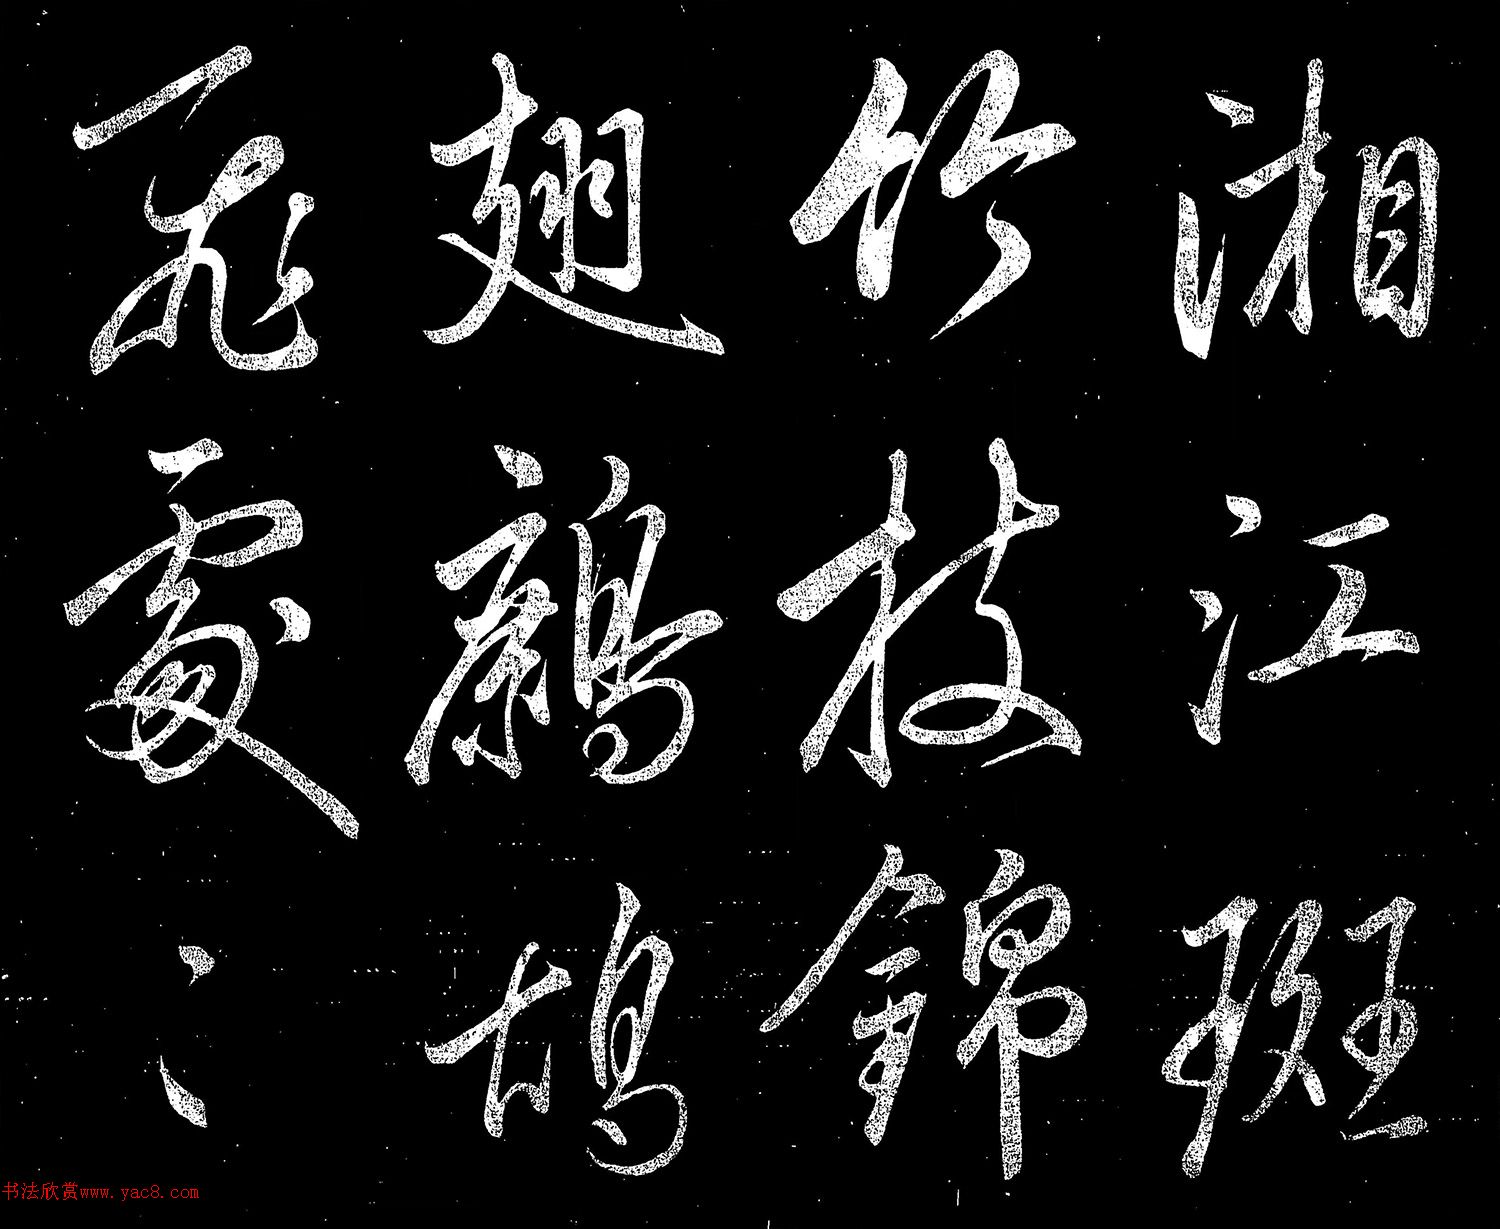 湘江斑
竹枝錦
翅鷓鴣
飛處〻
书法欣赏www.yac8.com